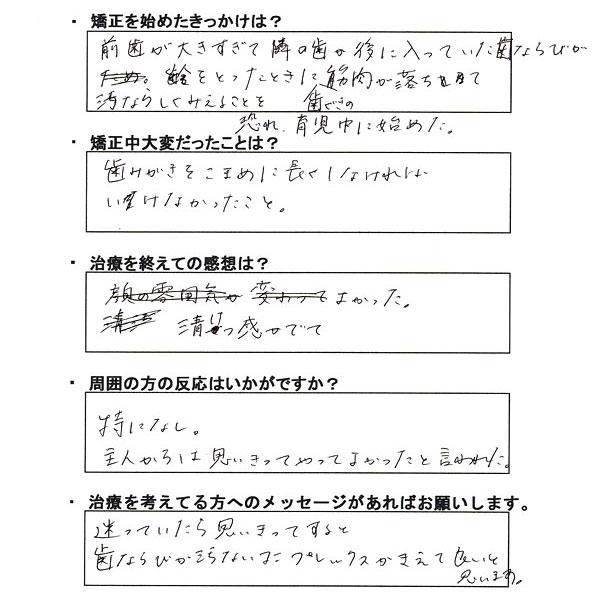 ・ 矯正を始めたきっかけは？
前歯が大きすぎて隣の歯が後に入っていた歯ならびが
ため。齢をとったときに筋肉が落ち
汚ならしくみえることを 歯ぐきの
恐れ、育児中に始めた。
・ 矯正中大変だったことは？
歯みがきをこまめに長くしなければ
いけなかったこと。
・ 治療を終えての感想は？
顔の雰囲気が 変わって よかった。
清潔 清けつ感がでて
・ 周囲の方の反応はいかがですか？
特になし。
主人からは思いきってやってよかったと言われた。
・ 治療を考えてる方へのメッセージがあればお願いします。
迷っていたら思いきってすると
歯ならびが コンプレックスがきえて良いと
思います。